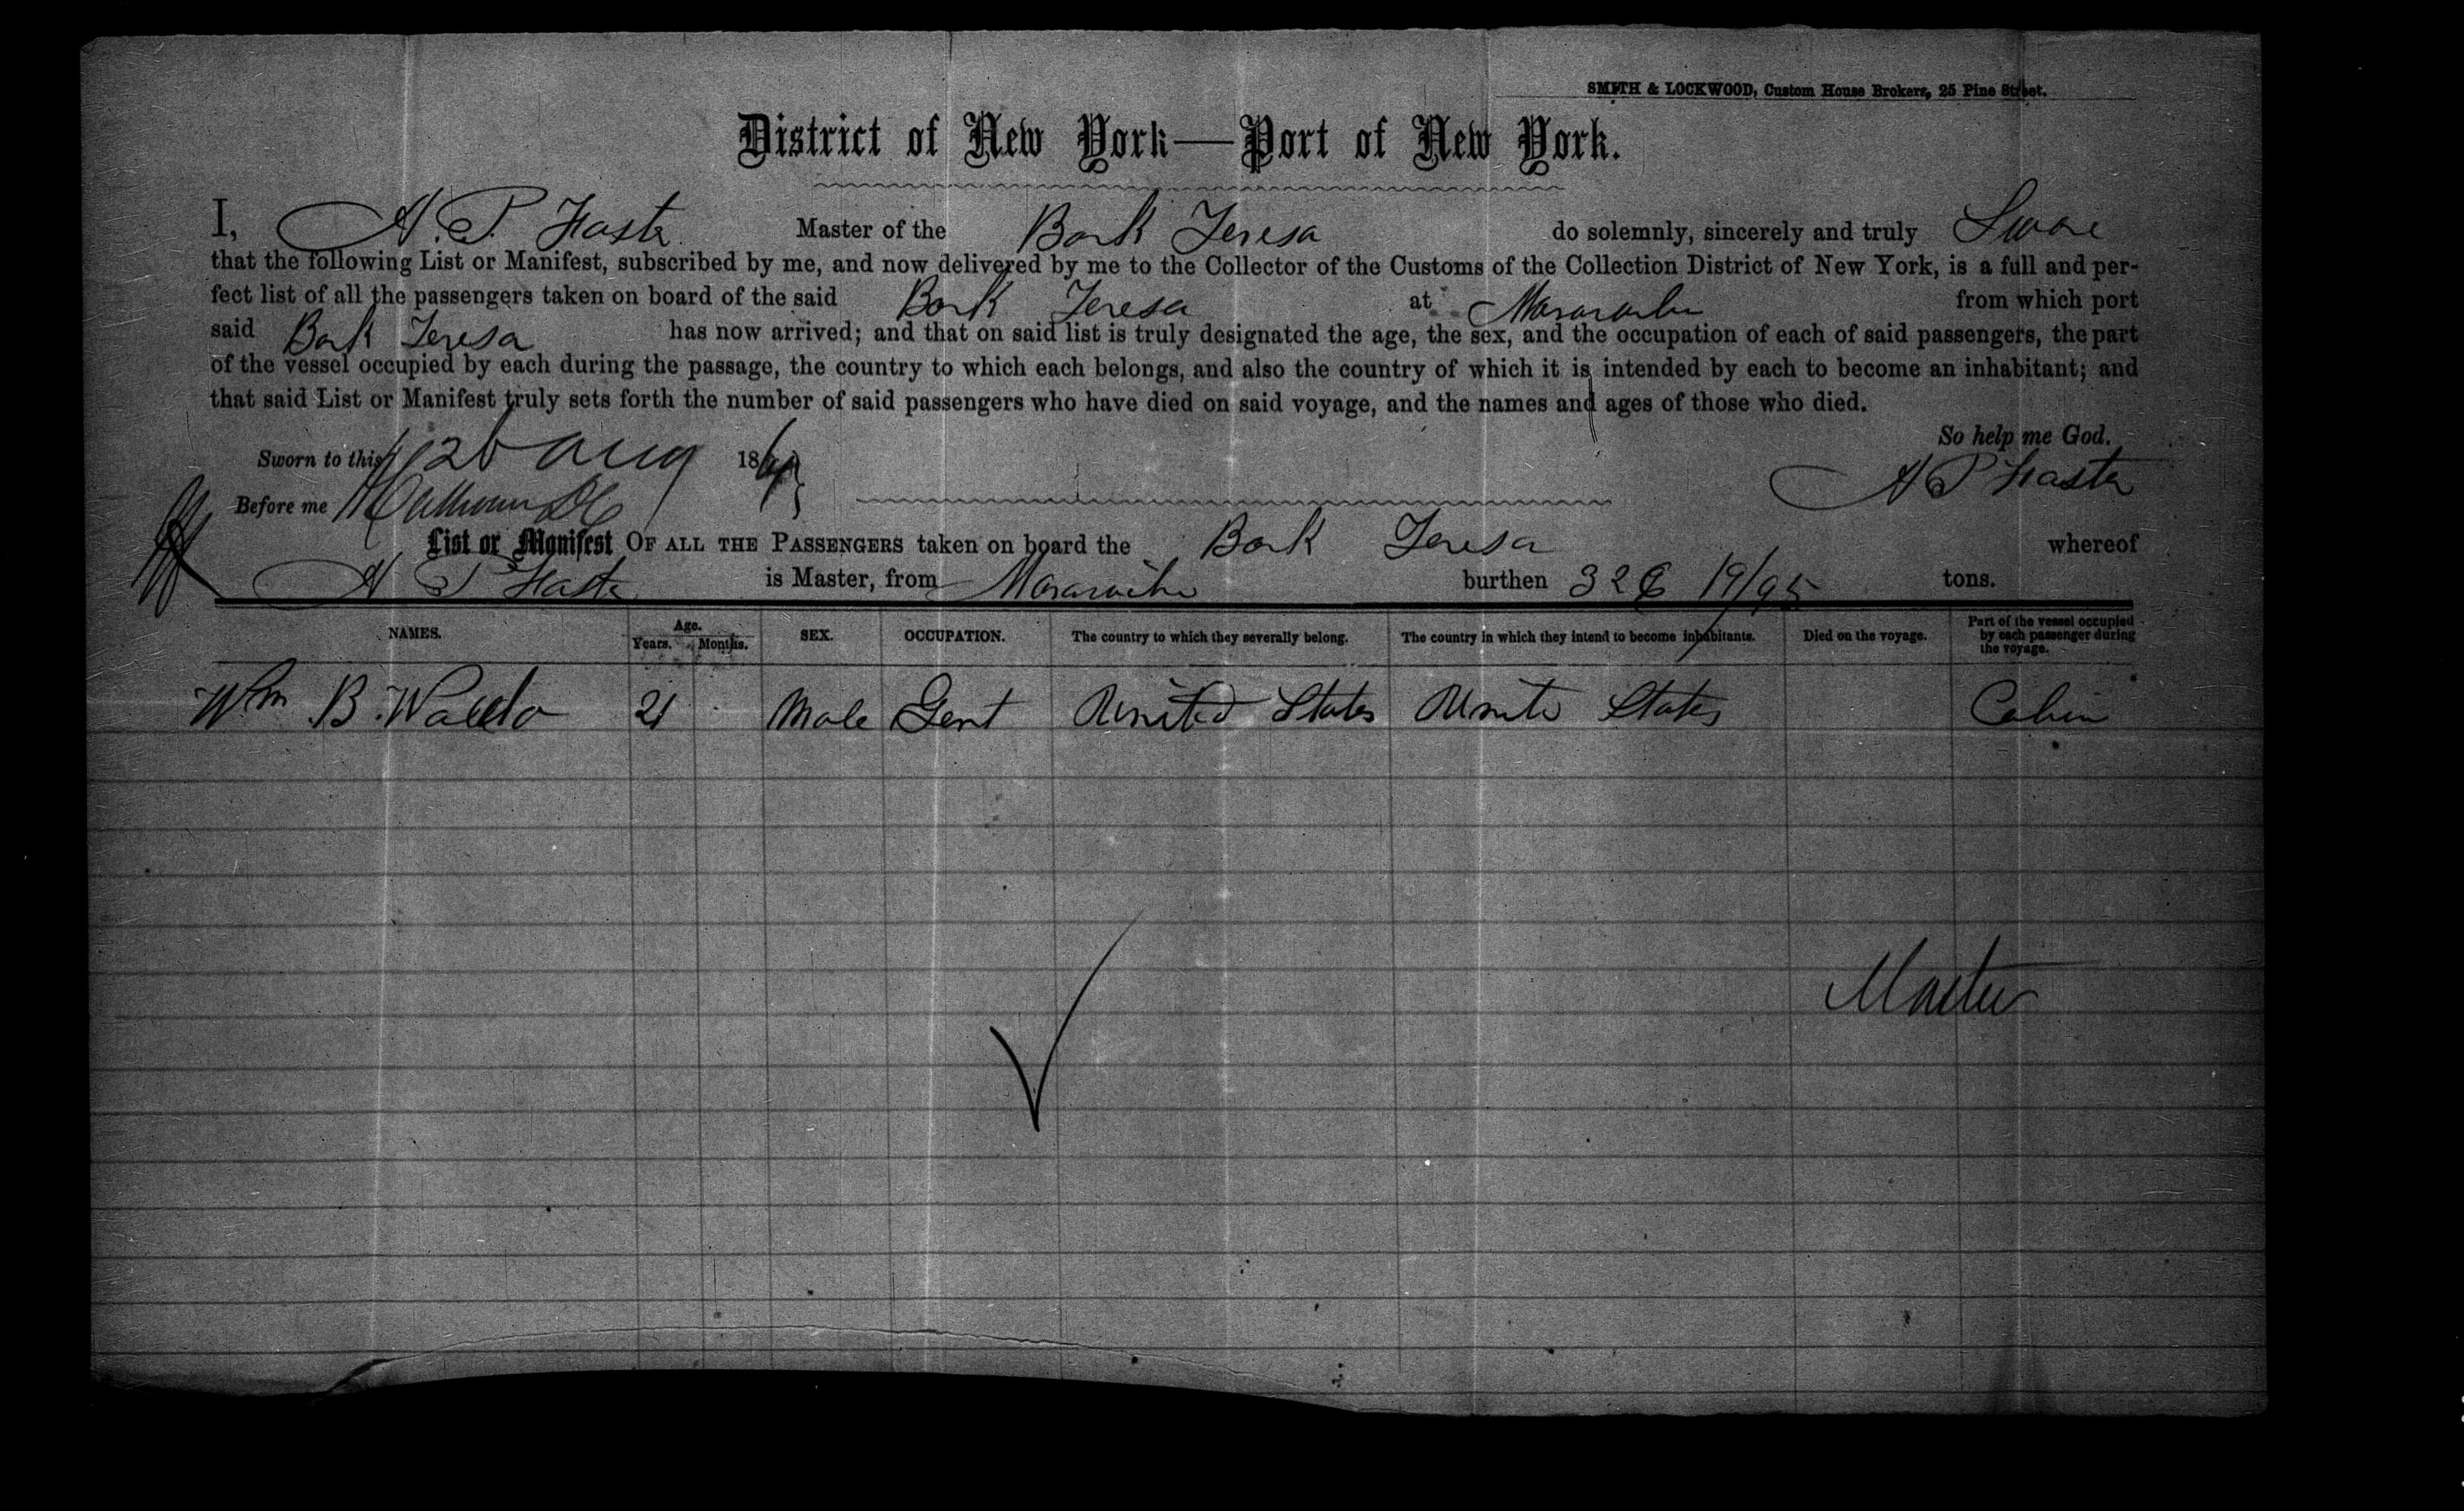 SMITH & LOCKWOOD, Custom House Brokers, 25 Pine Street.
District of New York—Port of New York.
I, Master of the Bark Teresa do solemnly, sincerely and truly Swore
that the following List or Manifest, subscribed by me, and now delivered by me to the Collector of the Customs of the Collection District of New York, is a full and per-
fect list of all the passengers taken on board of the said Bark Teresa at from which port
said Bark Teresa has now arrived; and that on said list is truly designated the age, the sex, and the occupation of each of said passengers, the part
of the vessel occupied by each during the passage, the country to which each belongs, and also the country of which it is intended by each to become an inhabitant; and
that said List or Manifest truly sets forth the number of said passengers who have died on said voyage, and the names and ages of those who died.
So help me God.
Sworn to this 26 Aug 18
Before me
List or Manifest OF ALL THE PASSENGERS taken on board the Bark Teresa whereof
is Master, from burthen 326 19/95 tons.
NAMES. Age. Years. Months. SEX. OCCUPATION. The country to which they severally belong. The country in which they intend to become inhabitants. Died on the voyage. Part of the vessel occupied by each passenger during the voyage.
Wm B. Waldo 21 Male Gent United States Unite States Cabin
Master